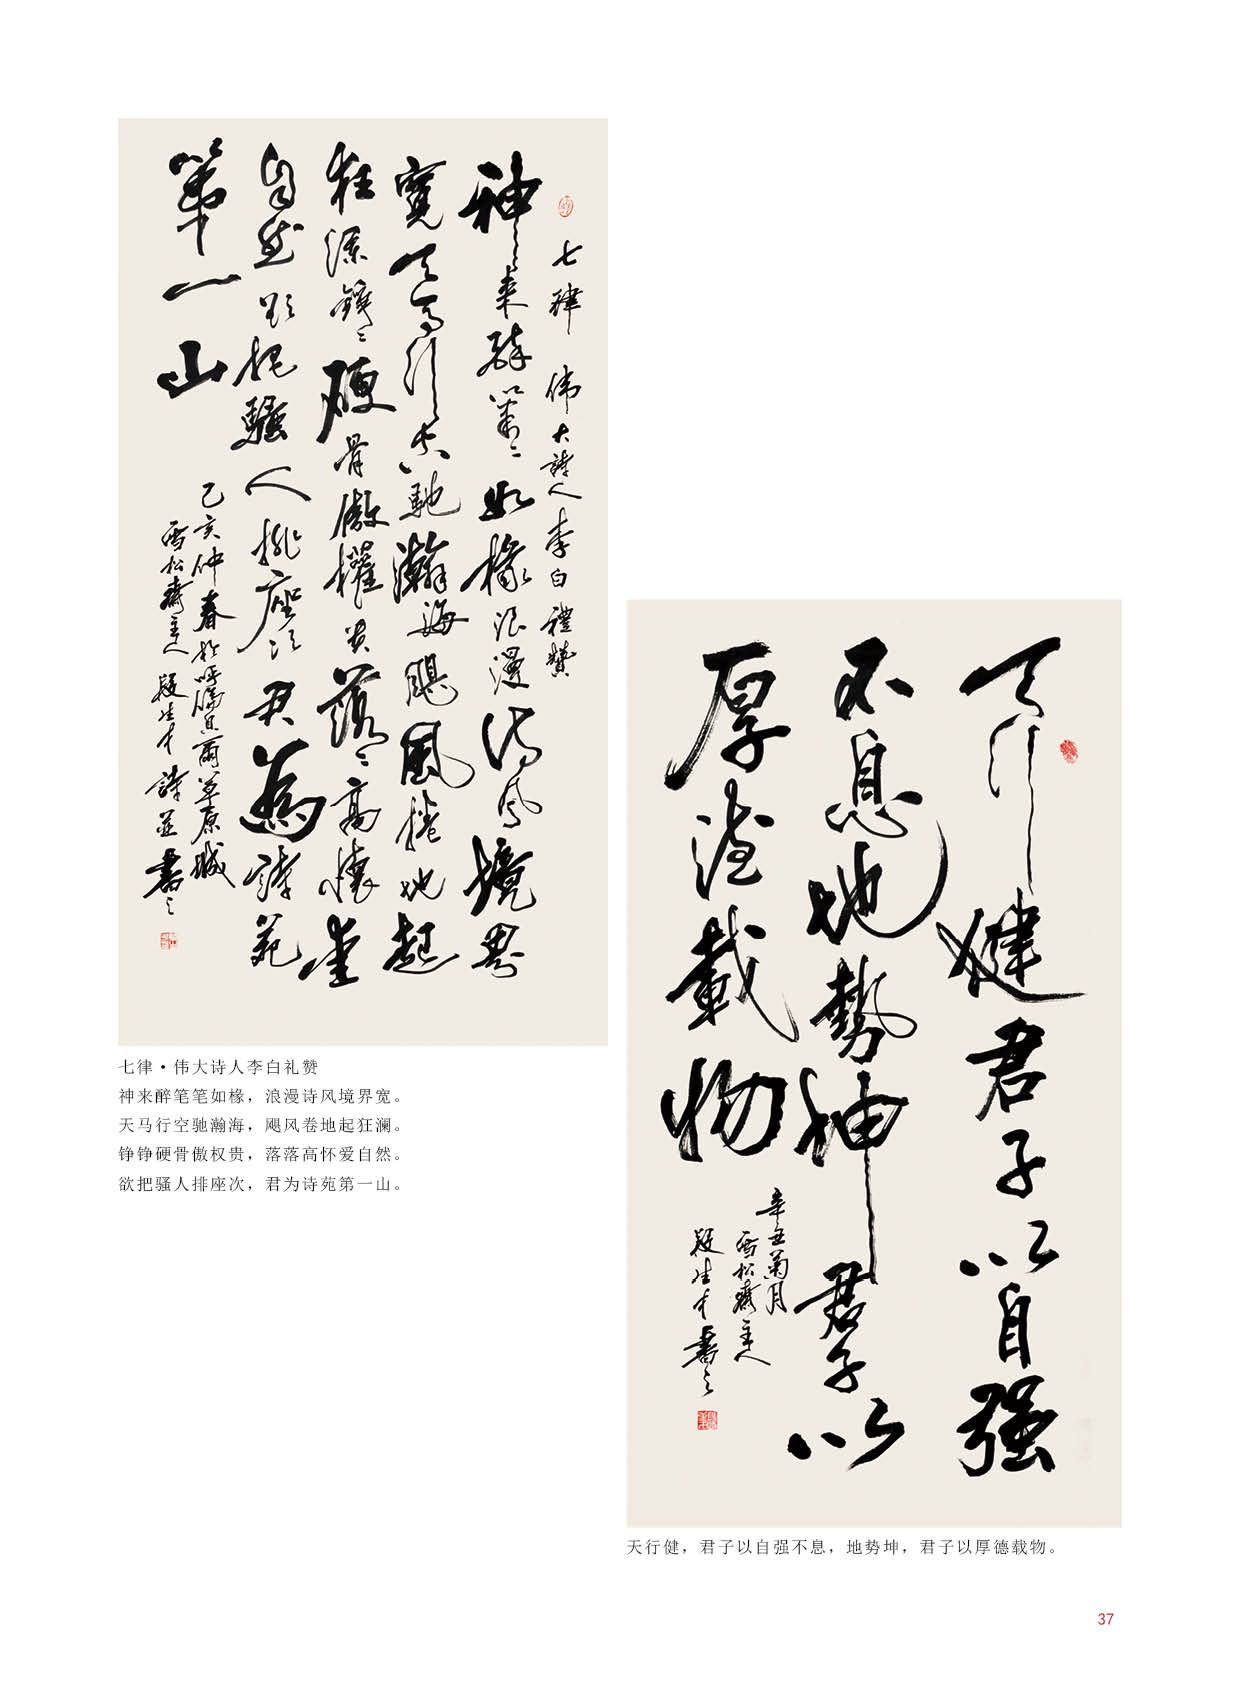 七律 伟大詩人李白禮贊
神来醉筆〻如椽浪漫诗风境界
寬天马行空馳瀚海飓風捲地起
狂澜錚〻硬骨傲權贵落〻高懷爱
自然欲把騷人排座次君為詩苑
第一山
己亥仲春於呼倫貝爾草原城
雪松齋主人段生才詩並書之
七律·伟大诗人李白礼赞
神来醉笔笔如椽，浪漫诗风境界宽。
天马行空驰瀚海，飓风卷地起狂澜。
铮铮硬骨傲权贵，落落高怀爱自然。
欲把骚人排座次，君为诗苑第一山。
天行健君子以自强
不息地势坤君子以
厚德載物
辛丑菊月
雪松齋主人
段生才書之
天行健，君子以自强不息，地势坤，君子以厚德载物。
37